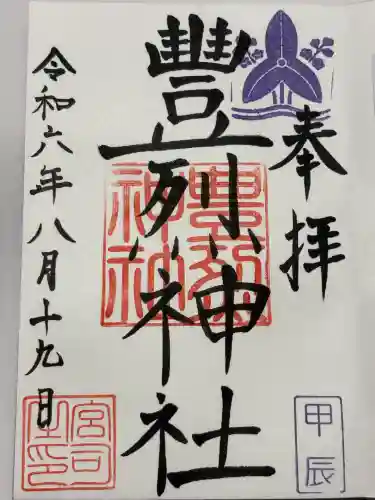 奉拝
甲辰
豐烈神社
豊烈神社
令和六年八月十九日
宮司之印